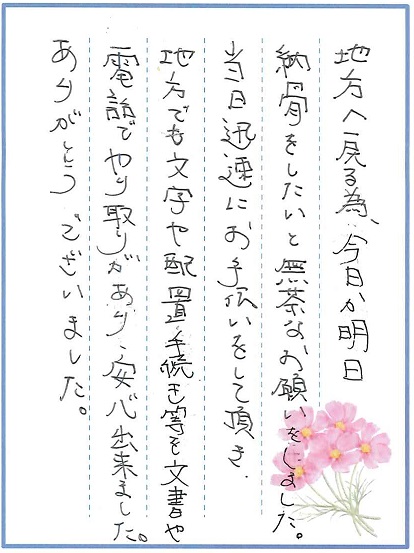 地方へ戻る為、今日か明日
納骨をしたいと無茶なお願いをしました。
当日迅速にお手伝いをして頂き、
地方でも文字や配置、手続き等を文書や
電話でやり取りがあり、安心出来ました。
ありがとうございました。